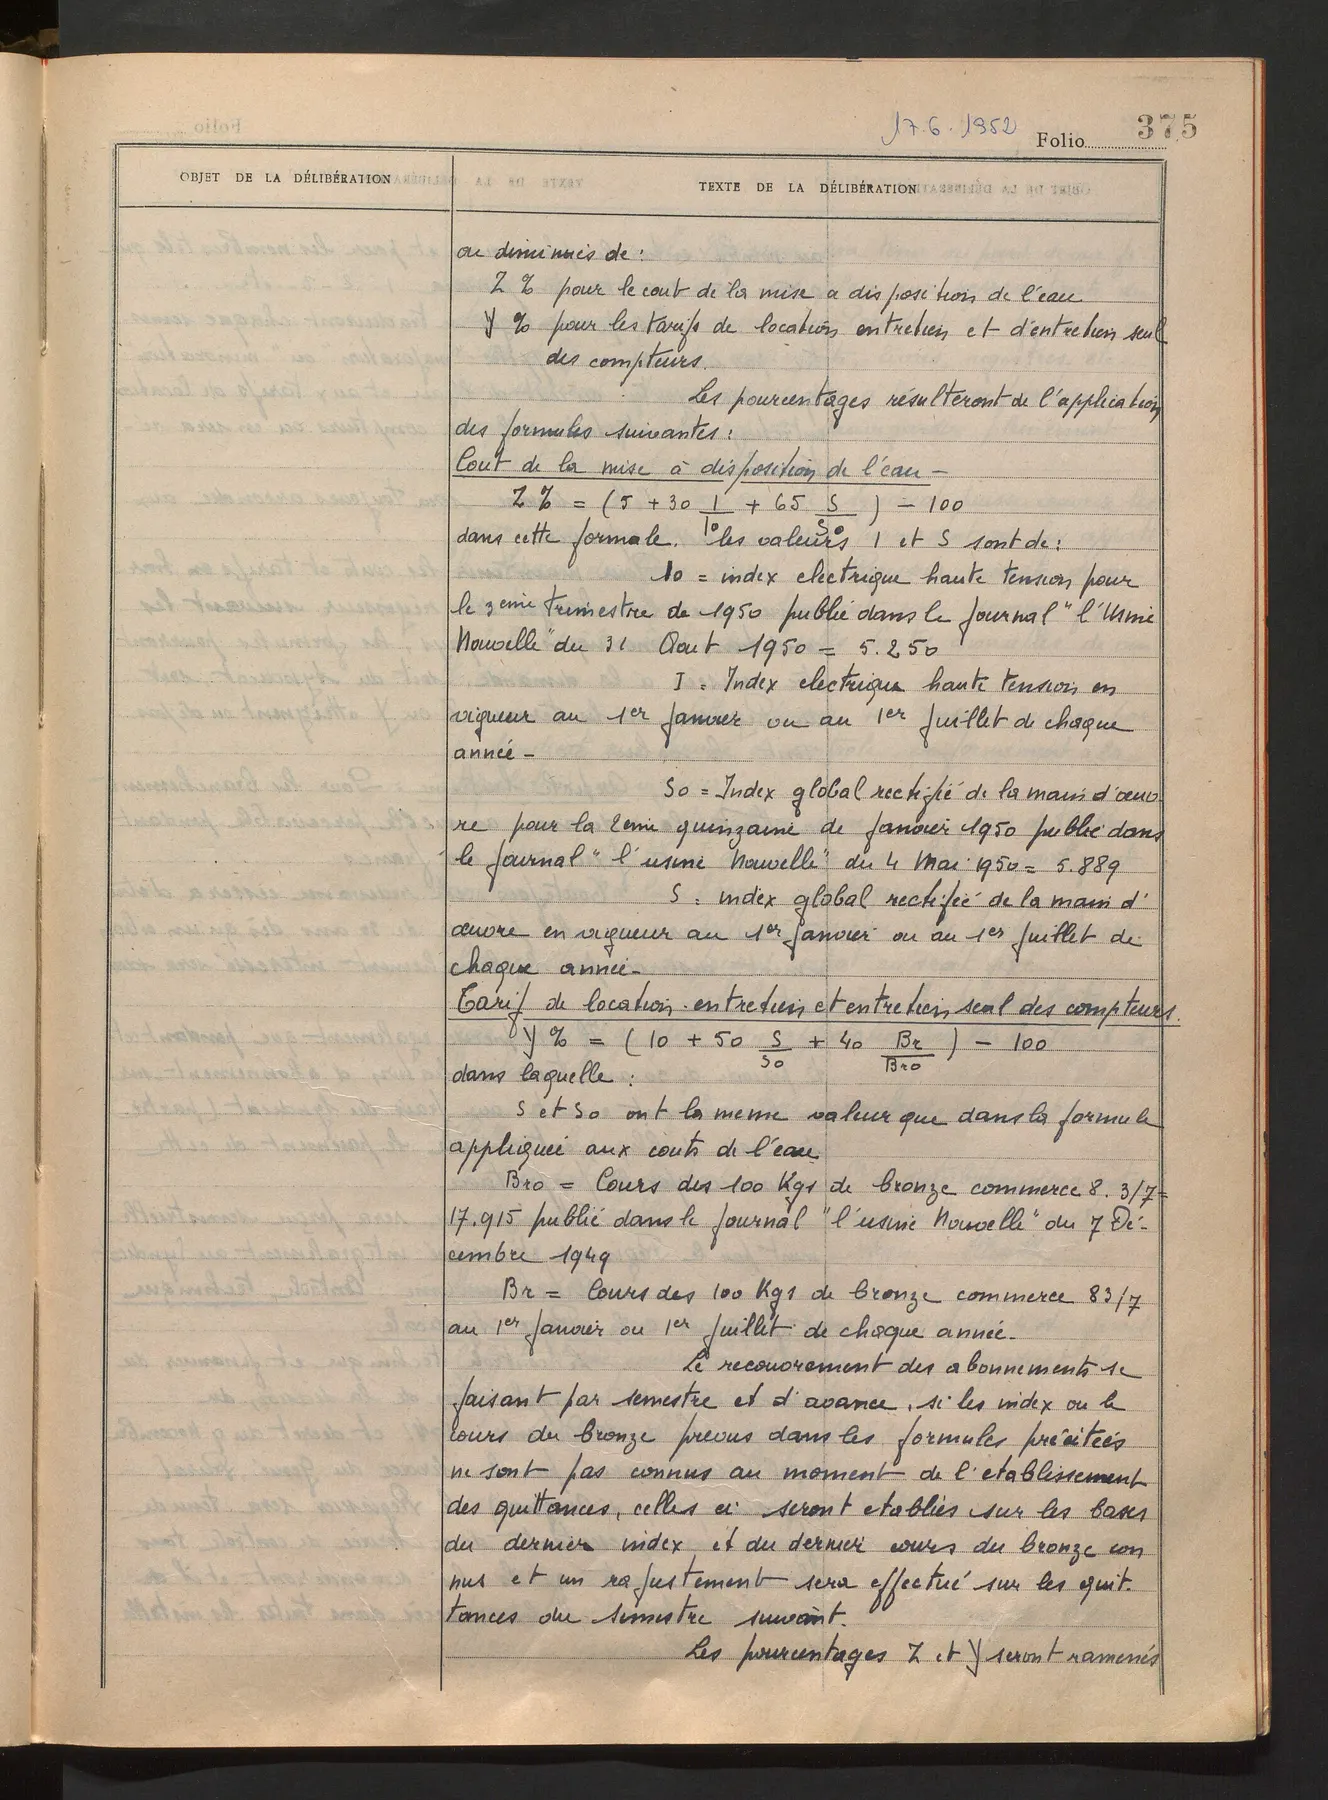 17.6.1952
Folio 375
OBJET DE LA DÉLIBÉRATION
TEXTE DE LA DÉLIBÉRATION
ou diminués de :
Z % pour le cout de la mise a disposition de l'eau
Y % pour les tarifs de location entretien et d'entretien seul
des compteurs.
Les pourcentages résulteront de l'application
des formules suivantes :
Cout de la mise à disposition de l'eau -
Z % = ( 5 + 30 I/Io + 65 S/So ) - 100
dans cette formule. les valeurs I et S sont de :
Io = index electrique haute tension pour
le 3eme trimestre de 1950 publié dans le journal "l'Usine
Nouvelle" du 31 Aout 1950 = 5.250
I = Index electrique haute tension en
vigueur au 1er janvier ou au 1er juillet de chaque
année -
So = Index global rectifié de la main d'œuv
re pour la 2eme quinzaine de janvier 1950 publié dans
le journal "l'usine Nouvelle" du 4 Mai 1950 = 5.889
S = index global rectifié de la main d'
œuvre en vigueur au 1er janvier ou au 1er juillet de
chaque année -
Tarif de location - entretien et entretien seul des compteurs.
Y % = ( 10 + 50 S/So + 40 Br/Bro ) - 100
dans laquelle :
S et So ont la meme valeur que dans la formule
appliquée aux couts de l'eau
Bro = Cours des 100 Kgs de bronze commerce 8. 3/7 =
17.915 publié dans le journal "l'usine Nouvelle" du 7 Dé-
cembre 1949
Br = Cours des 100 Kgs de bronze commerce 83/7
au 1er janvier ou 1er juillet de chaque année -
Le recouvrement des abonnements se
faisant par semestre et d'avance, si les index ou le
cours du bronze prevus dans les formules précitées
ne sont pas connus au moment de l'etablissement
des quittances, celles ci seront etablies sur les bases
du dernier index et du dernier cours du bronze con
nus et un rajustement sera effectué sur les quit-
tances du semestre suivant.
Les pourcentages Z et Y seront ramenés